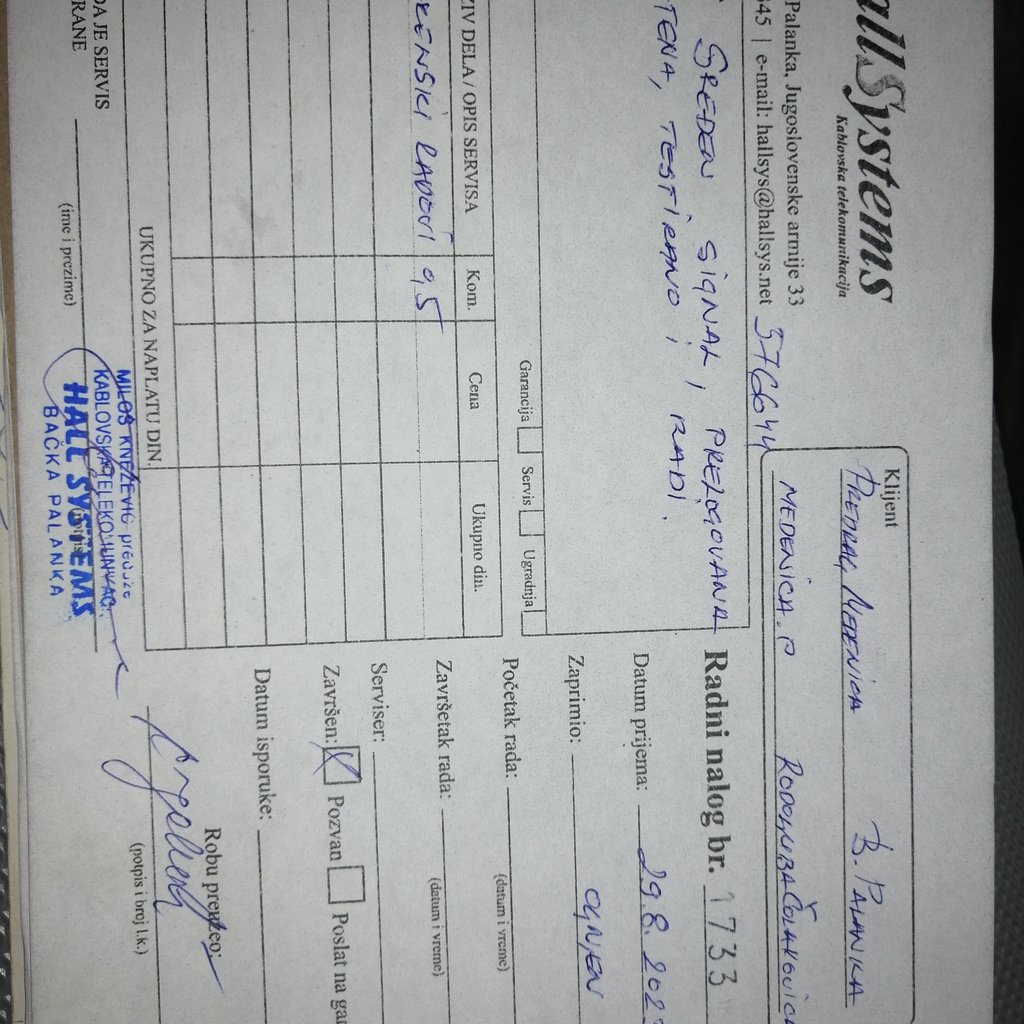 allSystems
Kablovska telekomunikacija
Palanka, Jugoslovenske armije 33
345 | e-mail: hallsys@hallsys.net 376644
Klijent
PREDRAG MEDENICA B. PALANKA
MEDENICA.P RODOLJUBA ČOLAKOVIĆA
SREĐEN SIGNAL, PREPOGOVANA
TENA, TESTIRANO I RADI.
Garancija Servis Ugradnja
Radni nalog br. 1733
Datum prijema: 29.8.202
Zaprimio: OGNJEN
Početak rada:
(datum i vreme)
Završetak rada:
(datum i vreme)
Serviser:
Završen: X Pozvan Poslat na gar
Datum isporuke:
ZIV DELA / OPIS SERVISA Kom. Cena Ukupno din.
RENSKI RADOVI 0,5
UKUPNO ZA NAPLATU DIN.
DA JE SERVIS
RANE
(ime i prezime)
MILOŠ KNEŽEVIĆ preduze
HALL SYSTEMS
BAČKA PALANKA
Robu preuzeo:
(potpis i broj l.k.)